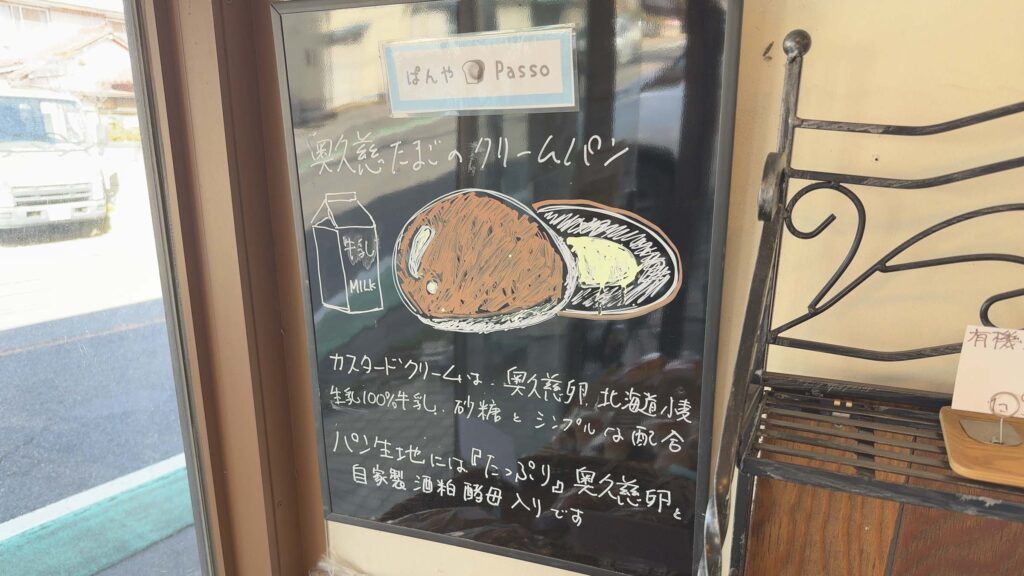 ぱんや Passo
奥久慈たまごのクリームパン
牛乳
MILK
カスタードクリームは、奥久慈卵、北海道小麦
生乳100%牛乳、砂糖とシンプルな配合
パン生地には『たっぷり』奥久慈卵と
自家製酒粕酵母入りです
有機